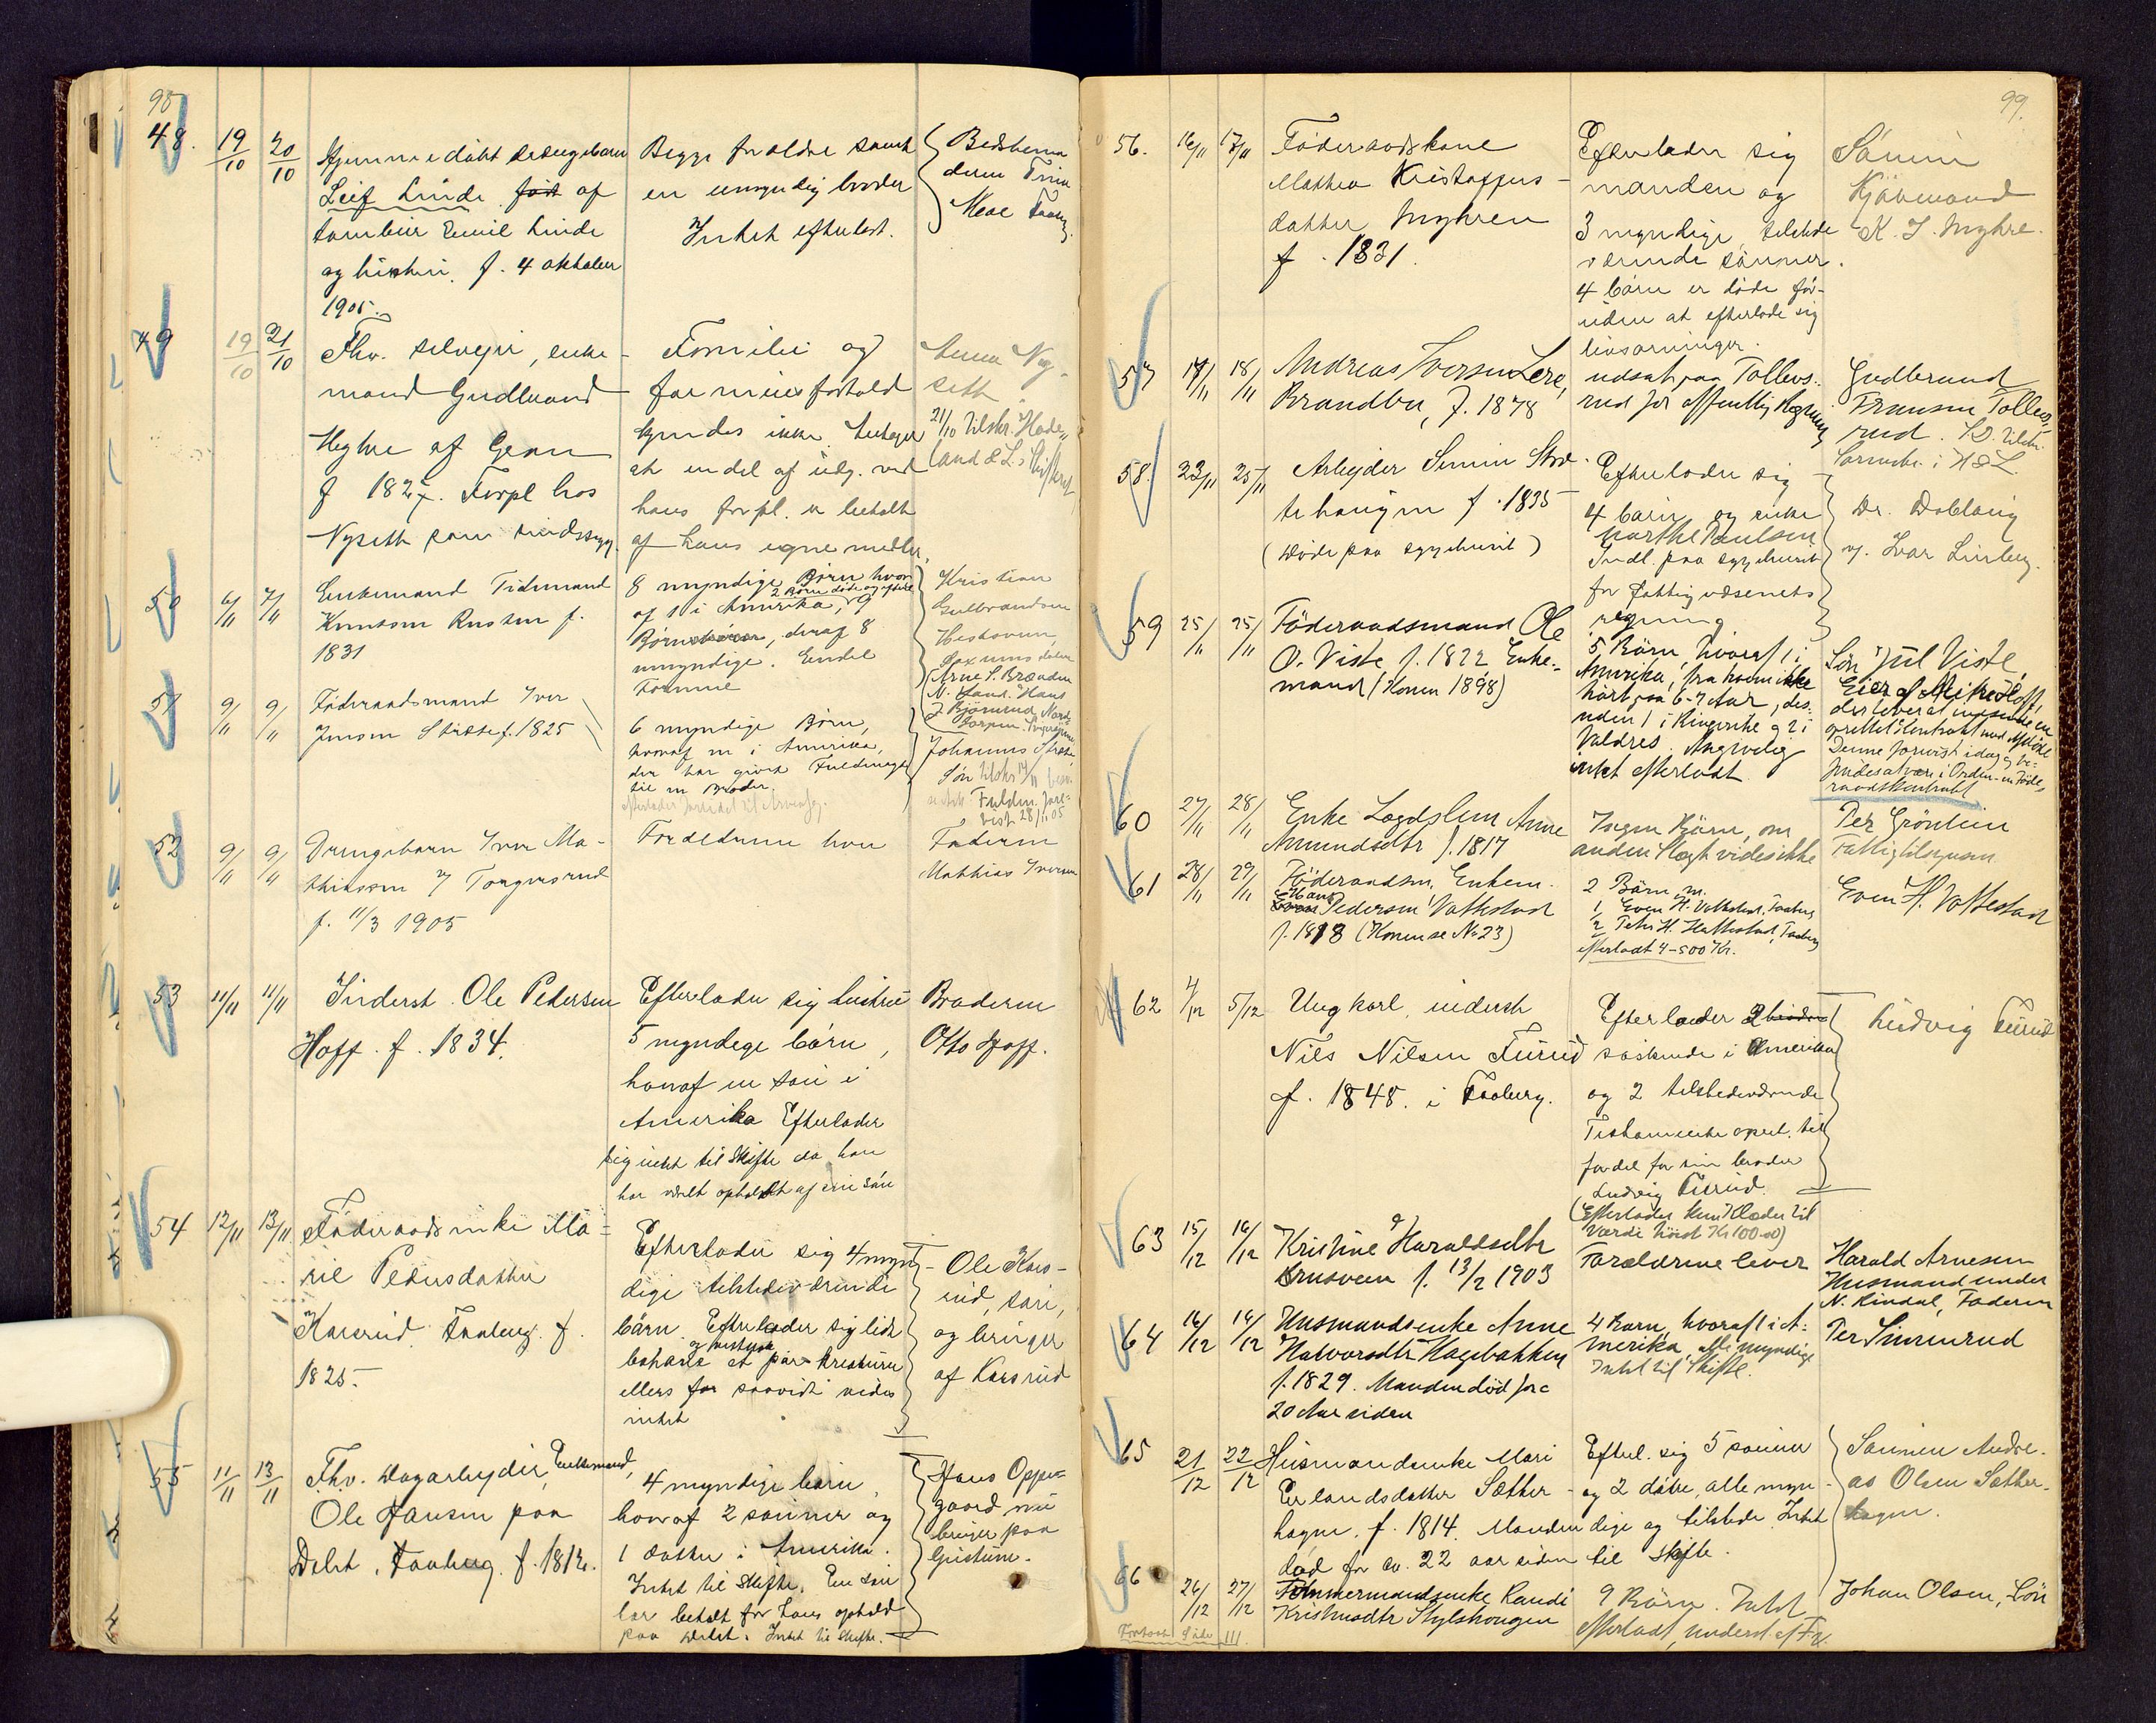 98
48. 19/10 20/10 Hjemmedøbt drengebarn
Leif Linde født af
Emil Linde
og hustru. f. 4 oktober
1905.
Begge forældre samt
en umyndig broder
Intet efterladt.
49 19/10 21/10 Fhv. selveier, enke-
mand Gudbrand
Myhre af Gran
f 1827. Forpl hos
Nyseth som sindssyg.
Familie og
formuesforhold
kjendes ikke. Antager
at en del af udg. ved
hans forpl. er betalt
af hans egne midler.
21/10 tilskr. Hade-
land & L.s Skifteret
50 6/11 7/11 Enkemand Tidemand
Knutsen Rusten f.
1831
8 myndige Børn hvor
af 1 i Amerika, 2 Børn døde og efterl. 9
Børnebørn, deraf 8
umyndige. Endel
Formue
Kristian
Gulbrandsen
Arne S. Brænden
N. Land. Hans
J. Bjørnerud, Nord-
51 9/11 9/11 Føderaadsmand Iver
Jensen Stræte f. 1825
6 myndige Børn,
hvoraf en i Amerika,
der har givet Fuldmagt
til en Broder.
Johannes Stræte
Søn tilskr 17/11
Fuldm. fore-
vist 28/11 05
52 9/11 9/11 Drengebarn Iver Ma-
thiassen af Tongersrud
f. 11/3 1905
Forældrene lever
Faderen
Mathias Iversen
53 11/11 11/11 Inderst. Ole Pedersen
Hoff. f. 1834.
Efterlader sig hustru
5 myndege børn,
hvoraf en søn i
Amerika Efterlader
sig intet til skifte da han
har været opholdt af sin søn
Broderen
Otto Hoff.
54 12/11 13/11 Føderaadsenke Ma-
rie Pedersdatter
Karsrud. Faaberg. f.
1825.
Efterlader sig 4 myn-
dige tilstedeværende
børn. Efterlader sig lidt
bohave og et par kreaturer
ellers for saavidt vides
intet
Ole Kars-
rud, søn,
og bruger
af Karsrud
55 11/11 13/11 Fhv. Dagarbejder, Enkemand,
Ole Hansen paa
Dølet, Faaberg. f. 1812.
4 myndige børn,
hvoraf 2 sønner og
1 datter i Amerika.
Intet til skifte. En søn
har betalt for hans ophold
paa Dølet. Intet til skifte.
Hans Oppe-
gaard nu
bruger paa
99.
56. 16/11 17/11 Føderaadskone
Mathea Kristoffers-
datter Myhren
f. 1831.
Efterlader sig
manden og
3 myndige, tilstede
værende sønner.
4 børn er døde for-
uden at efterlade sig
livsarvinger.
Sønnen
Kjøbmand
K. J. Myhre.
57 17/11 18/11 Andreas Iversen Lere,
Brandbu, f. 1878
udsat paa Tollers-
rud for offentlig Regning
Gudbrand
Fransen Tollers-
rud. S.D. tilskr.
Sorenskr. i H & L
58. 23/11 25/11 Arbejder Simen Stor-
tehaugen f. 1835
(Døde paa sygehuset)
Efterlader sig
4 børn og enke
Marthe Paulsen
Indl. paa sygehuset
for fattigvæsenets
regning
Dr. Dobloug
v. Ivar Linberg.
59 25/11 25/11 Føderaadsmand Ole
O. Viste f. 1822 Enke-
mand (Konen 1898)
5 Børn, hvoraf 1 i
Amerika, fra hvem ikke
hørt paa 6-7 Aar, des-
uden 1 i Ringerike og 2 i
Valdres. Angivelig
intet efterladt
Søn Jul Viste,
Denne forevist idag og be-
findes at være i Orden - en Føde-
raadskontrakt
60 27/11 28/11 Enke Løgdslien Anne
Amundsdtr f. 1817
Ingen Børn, om
anden Slægt vides ikke
Per Grønlien
Fattigtilsynsm.
61 28/11 29/11 Føderaadsm. Enkem.
Hans Pedersen Vattestad
f. 1818 (Konen se No 23)
2 Børn,
1, Even H. Vattestad, Faaberg
2, Peter H. Hattestad, Faaberg
efterladt 4-500 Kr.
Even H. Vattestad
62 4/12 5/12 Ungkarl, inderst
Nils Nilsen Furud
f. 1848. i Faaberg.
Efterlader 2
søskende i Amerika
og 2 tilstedeværende
Testamente opret. til
fordel for sin broder
Ludvig Furud.
(Efterlader kun Klæder til
Værdi høist Kr 100-00)
Ludvig Furud
63 15/12 16/12 Kristine Haraldsdtr
Brusveen f. 13/2 1903
Forældrene lever
Harald Arnesen
Husmand under
N. Rindal, Faderen
64 16/12 16/12 Husmandsenke Anne
Halvorsdtr Hagebakken
f. 1829. Manden død for c
20 Aar siden
4 Børn, hvoraf 1 i A-
merika, alle myndige
Intet til Skifte.
Per Simenrud
65 21/12 22/12 Husmandsenke Mari
Erlandsdatter Sæther-
hagen. f. 1814. Manden
død for ca. 22 aar siden
Efterl. sig 5 sønner
og 2 døtre, alle myn-
dige og tilstede Intet
til skifte.
Sønnen Andre-
as Olsen Sæther-
hagen.
66 26/12 27/12 Tømmermandsenke Randi
Kristensdtr Stylshougen
9 Børn. Intet
efterladt, underst. af Fv.
Johan Olsen, Søn
Fortsat Side 111.